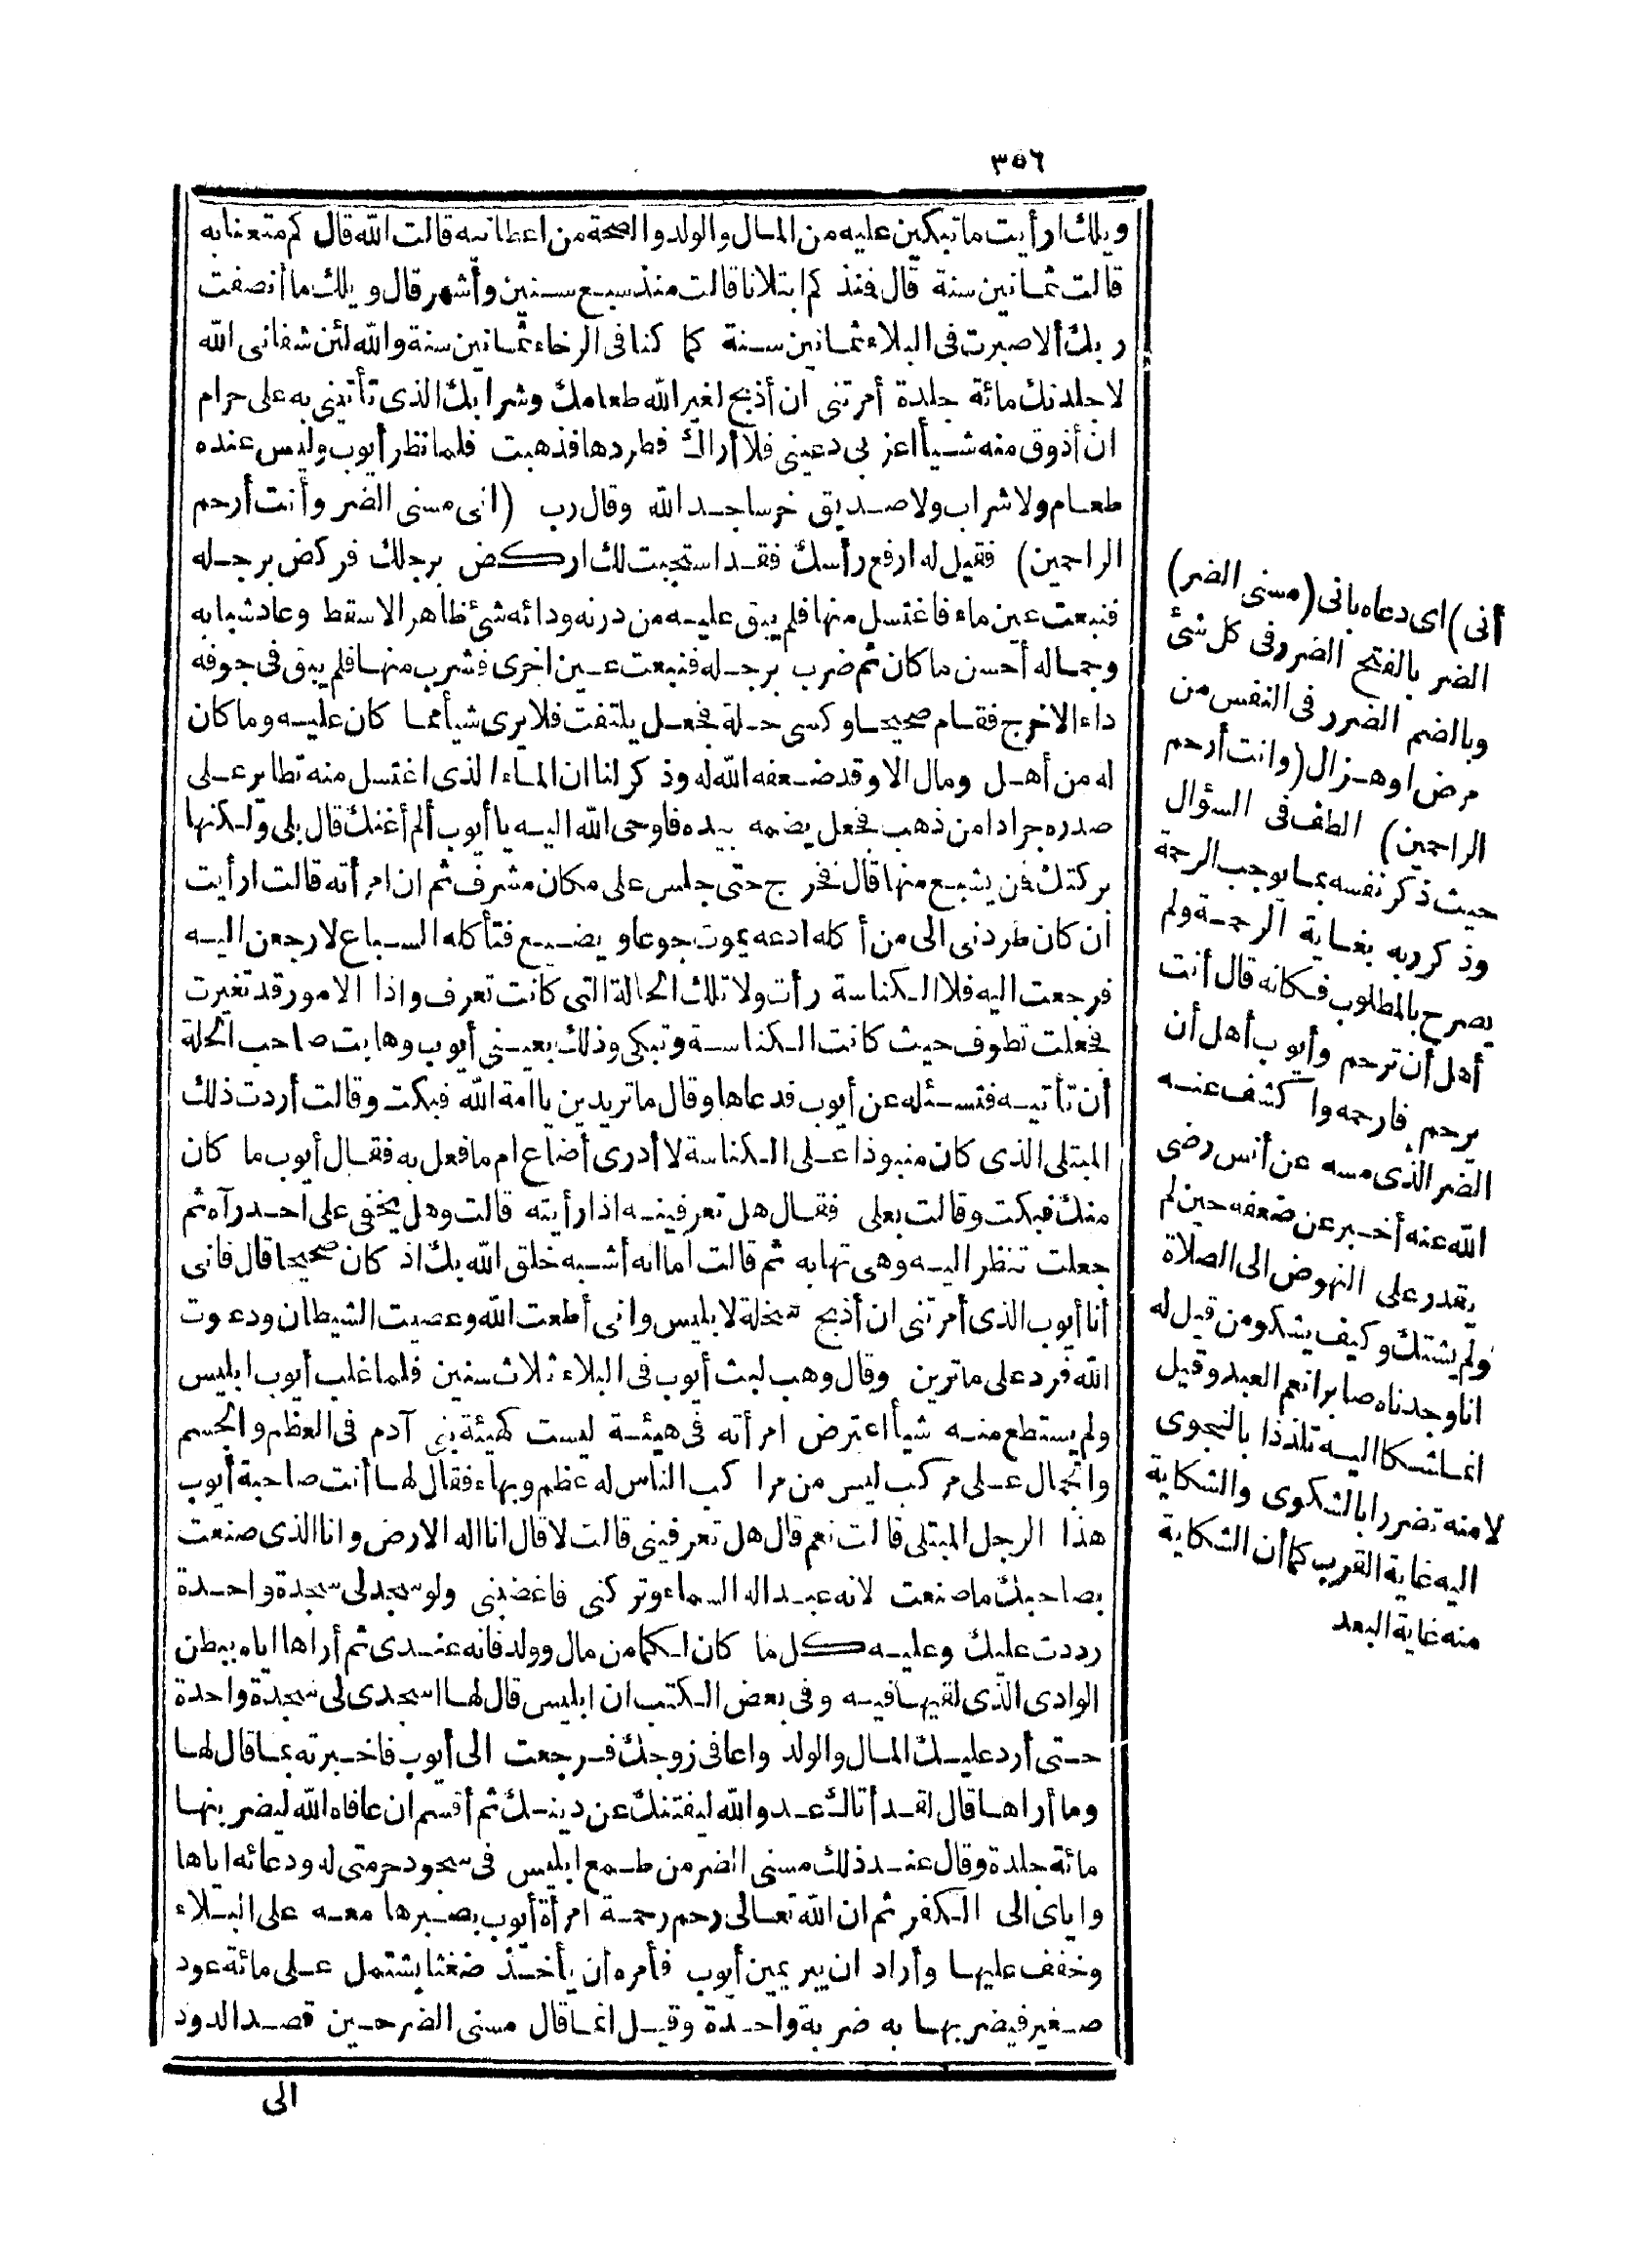 ٣٥٦
ويلك ارأيت ما تبكين عليه من المال والولد والصحة من اعطانيه قالت الله قال كم متعنا به
قالت ثمانين سنة قال فنذ كم ابتلانا قالت منذ سبع سنين وأشهر قال ويلك ما أنصفت
ربك ألا صبرت فى البلاء ثمانين سنة كما كنا فى الرخاء ثمانين سنة والله لئن شفانى الله
لاجلدنك مائة جلدة أمرتنى ان أذبح لغير الله طعامك وشرابك الذى تأتينى به على حرام
ان أذوق منه شيأ اعزبى دعينى فلا أراك فطردها فذهبت فلما نظر أيوب وليس عنده
طعام ولا شراب ولا صديق خر ساجد الله وقال رب (انى مسنى الضر وأنت أرحم
الراحمين) فقيل له ارفع رأسك فقد استجبت لك اركض برجلك فركض برجله
فنبعت عين ماء فاغتسل منها فلم يبق عليه من درنه ودائه شئ ظاهر الاسقط وعاد شبابه
وجماله أحسن ما كان ثم ضرب برجله فنبعت عين اخرى فشرب منها فلم يبق فى جوفه
داء الاخرج فقام صحيحا وكسى حلة فجعل يلتفت فلا يرى شيأ مما كان عليه وما كان
له من أهل ومال الا وقد ضعفه الله له وذكر لنا ان الماء الذى اغتسل منه تطاير على
صدره جرادا من ذهب فجعل يضمه بيده فاوحى الله اليه يا أيوب ألم أغنك قال بلى ولكنها
بركتك فن يشبع منها قال فخرج حتى جلس على مكان مشرف ثم ان امرأته قالت ارأيت
ان كان طردنى الى من أكله ادعه يموت جوعا ويضيع فتأكله السباع لارجعن اليه
فرجعت اليه فلا الكناسة رأت ولا تلك الحالة التى كانت تعرف واذا الامور قد تغيرت
فجعلت تطوف حيث كانت الكناسة وتبكى وذلك بعينى أيوب وهابت صاحب الحلة
أن تأتيه فتسئله عن أيوب فدعاها وقال ما تريدين يا أمة الله فبكت وقالت أردت ذلك
المبتلى الذى كان منبوذا على الكناسة لا أدرى أضاع ام ما فعل به فقال أيوب ما كان
منك فبكت وقالت بعلى فقال هل تعرفينه اذا رأيته قالت وهل يخفى على احد رآه ثم
جعلت تنظر اليه وهى تهابه ثم قالت أما انه أشبه خلق الله بك اذ كان صحيحا قال فانى
أنا أيوب الذى أمرتنى ان أذبح سخلة لابليس وانى أطعت الله وعصيت الشيطان ودعوت
الله فرد على ما ترين وقال وهب لبث أيوب فى البلاء ثلاث سنين فلما غلب أيوب ابليس
ولم يستطع منه شيأ اعترض امرأته فى هيئة ليست كهيئة بنى آدم فى العظم والجسم
والجمال على مركب ليس من مراكب الناس له عظم وبهاء فقال لها أنت صاحبة أيوب
هذا الرجل المبتلى قالت نعم قال هل تعرفينى قالت لا قال انا اله الارض وانا الذى صنعت
بصاحبك ما صنعت لانه عبد اله السماء وتركنى فاغضبنى ولو سجد لى سجدة واحدة
رددت عليك وعليه كل ما كان لكما من مال وولد فانه عندى ثم أراها اياه ببطن
الوادى الذى لقيها فيه وفى بعض الكتب ان ابليس قال لها اسجدى لى سجدة واحدة
حتى أرد عليك المال والولد واعافى زوجك فرجعت الى أيوب فاخبرته بما قال لها
وما أراها قال لقد أتاك عدو الله ليفتنك عن دينك ثم أقسم ان عافاه الله ليضربنها
مائة جلدة وقال عند ذلك مسنى الضر من طمع ابليس فى سجود حرمتى له ودعائه اياها
واياى الى الكفر ثم ان الله تعالى رحم رحمة امرأة أيوب بصبرها معه على البلاء
وخفف عليها وأراد ان يبر يمين أيوب فأمره أن يأخذ ضغثا يشتمل على مائة عود
صغير فيضربها به ضربة واحدة وقيل انما قال مسنى الضر حين قصد الدود
الى
أنى) اى دعاه بانى (مسنى الضر)
الضر بالفتح الضر وفى كل شئ
وبالضم الضرر فى النفس من
مرض او هزال (وانت أرحم
الراحمين) الطف فى السؤال
حيث ذكر نفسه بما يوجب الرحمة
وذكر ربه بغاية الرحمة ولم
يصرح بالمطلوب فكانه قال أنت
أهل أن ترحم وأيوب أهل أن
يرحم فارحمه واكشف عنه
الضر الذى مسه عن أنس رضى
الله عنه أخبر عن ضعفه حين لم
يقدر على النهوض الى الصلاة
ولم يشتك وكيف يشكو من قيل له
انا وجدناه صابرا نعم العبد وقيل
انما شكا اليه تلذذا بالنجوى
لا منه تضررا بالشكوى والشكاية
اليه غاية القرب كما أن الشكاية
منه غاية البعد